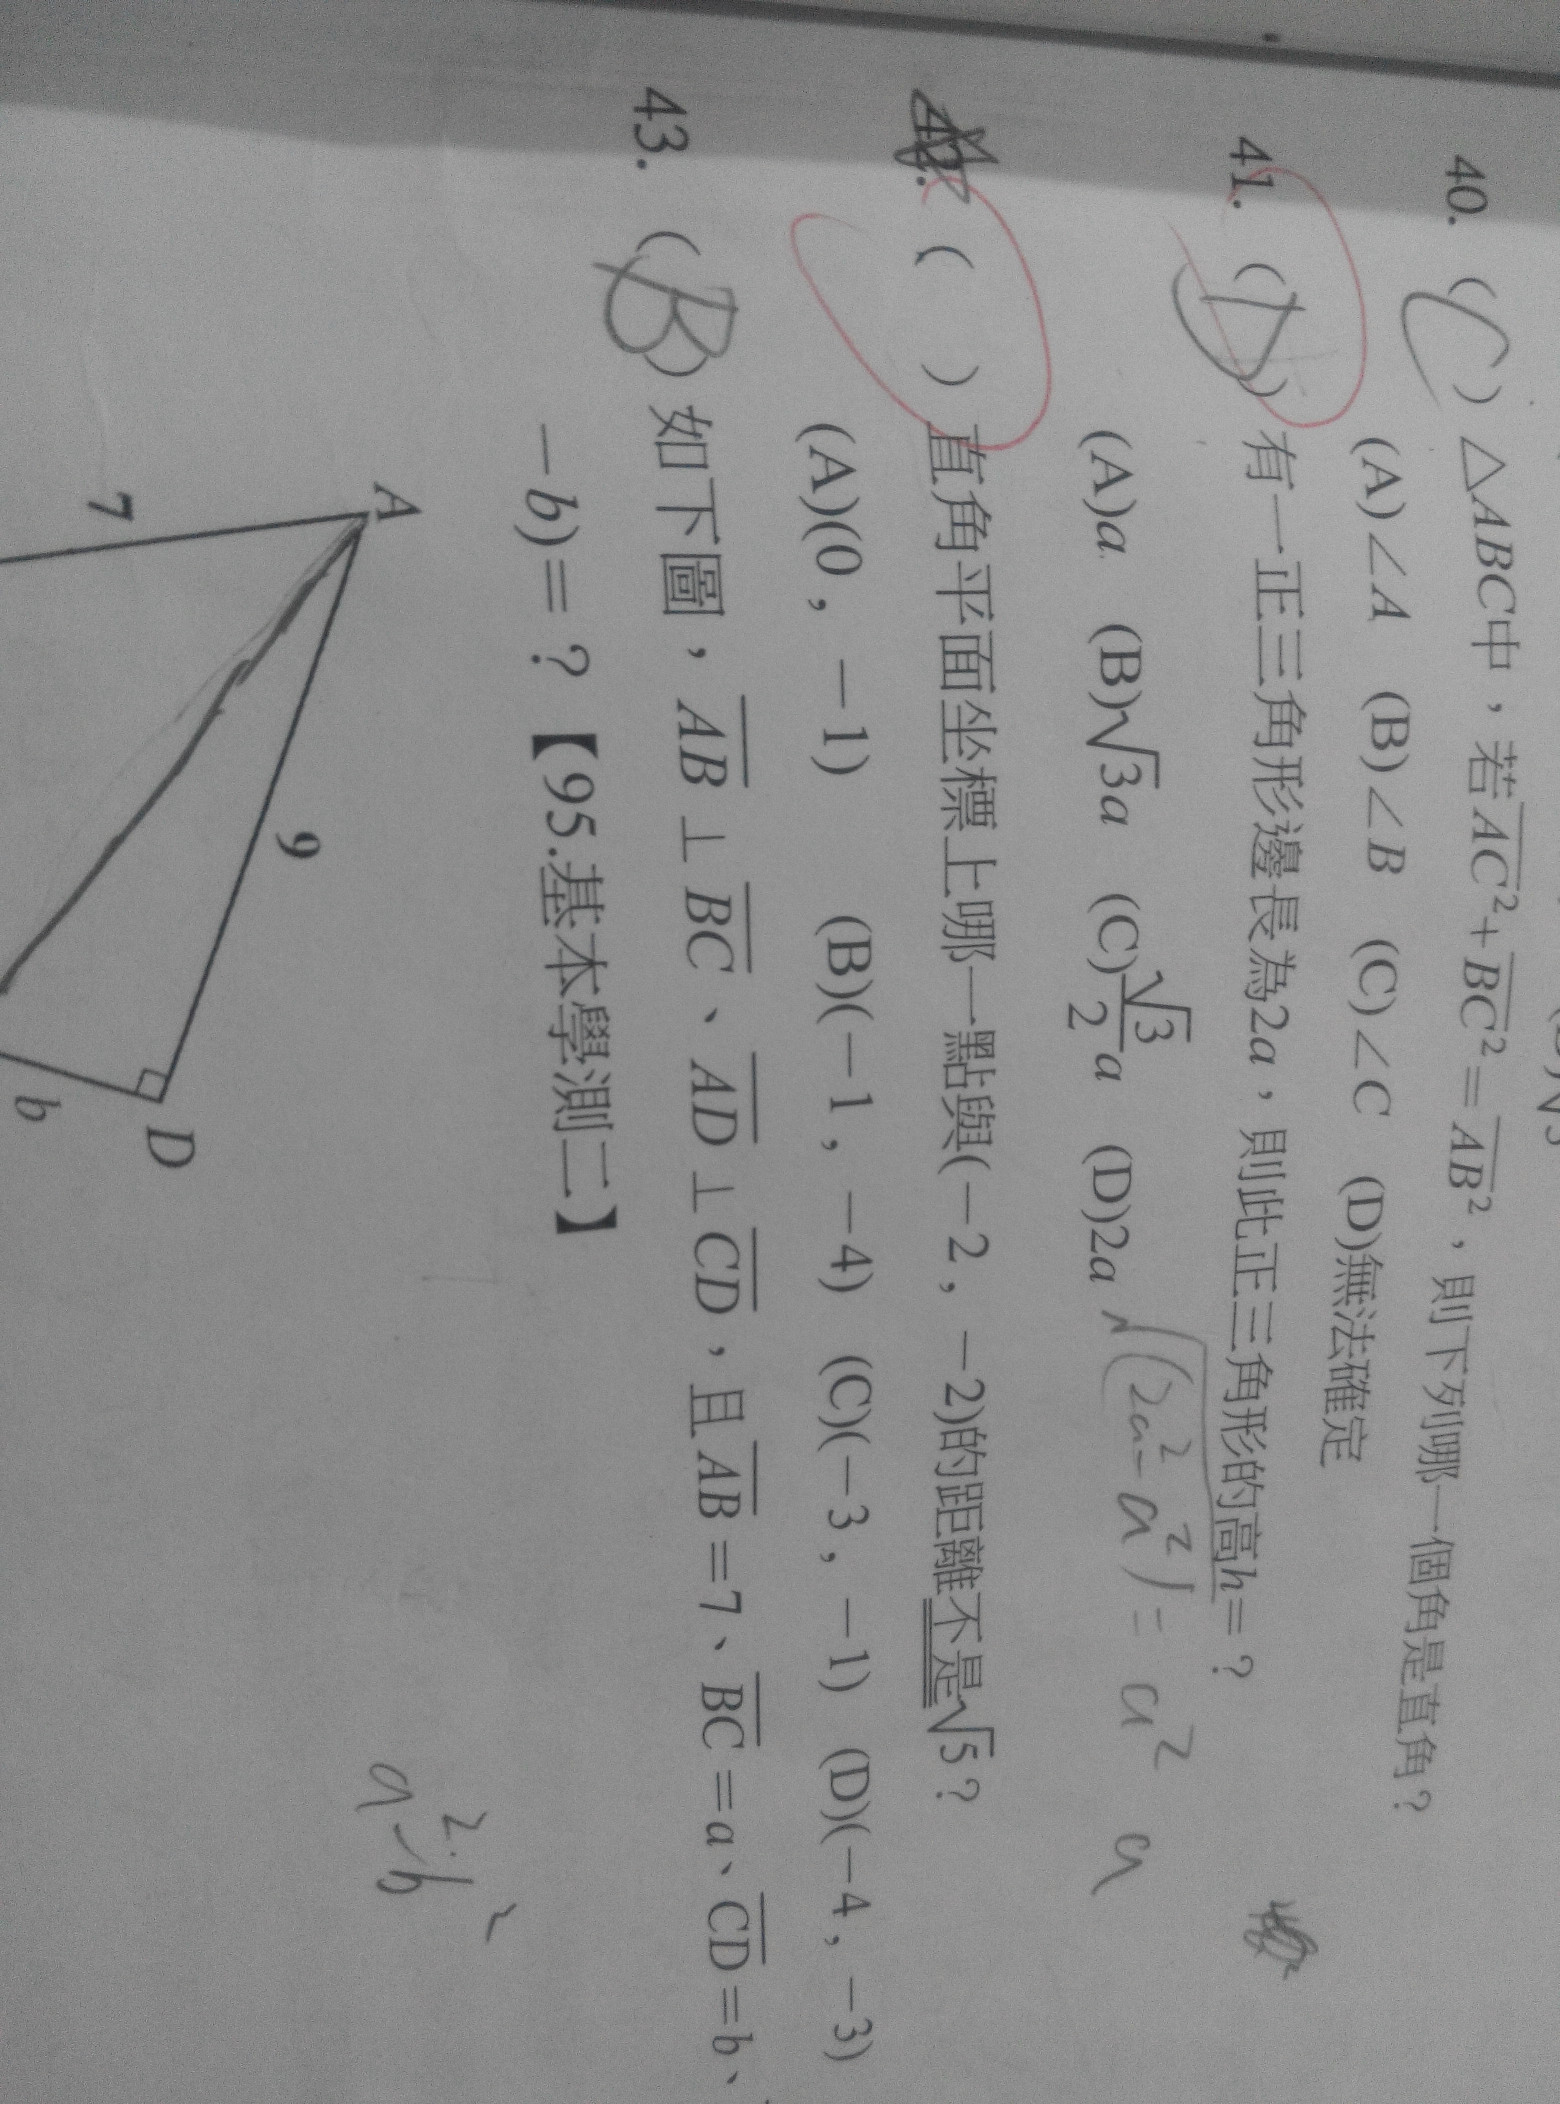 40. ( C ) △ABC中，若AC²+BC²=AB²，則下列哪一個角是直角？
(A)∠A (B)∠B (C)∠C (D)無法確定
41. ( D ) 有一正三角形邊長為2a，則此正三角形的高h=？
(A)a (B)√3a (C)√3/2 a (D)2a √(2a²-a²)=a² a
42. ( ) 直角平面坐標上哪一點與(-2，-2)的距離不是√5？
(A)(0，-1) (B)(-1，-4) (C)(-3，-1) (D)(-4，-3)
43. ( B ) 如下圖，AB⊥BC、AD⊥CD，且AB=7、BC=a、CD=b、
-b)=？【95.基本學測二】
a²-b²
A
9
7
D
b